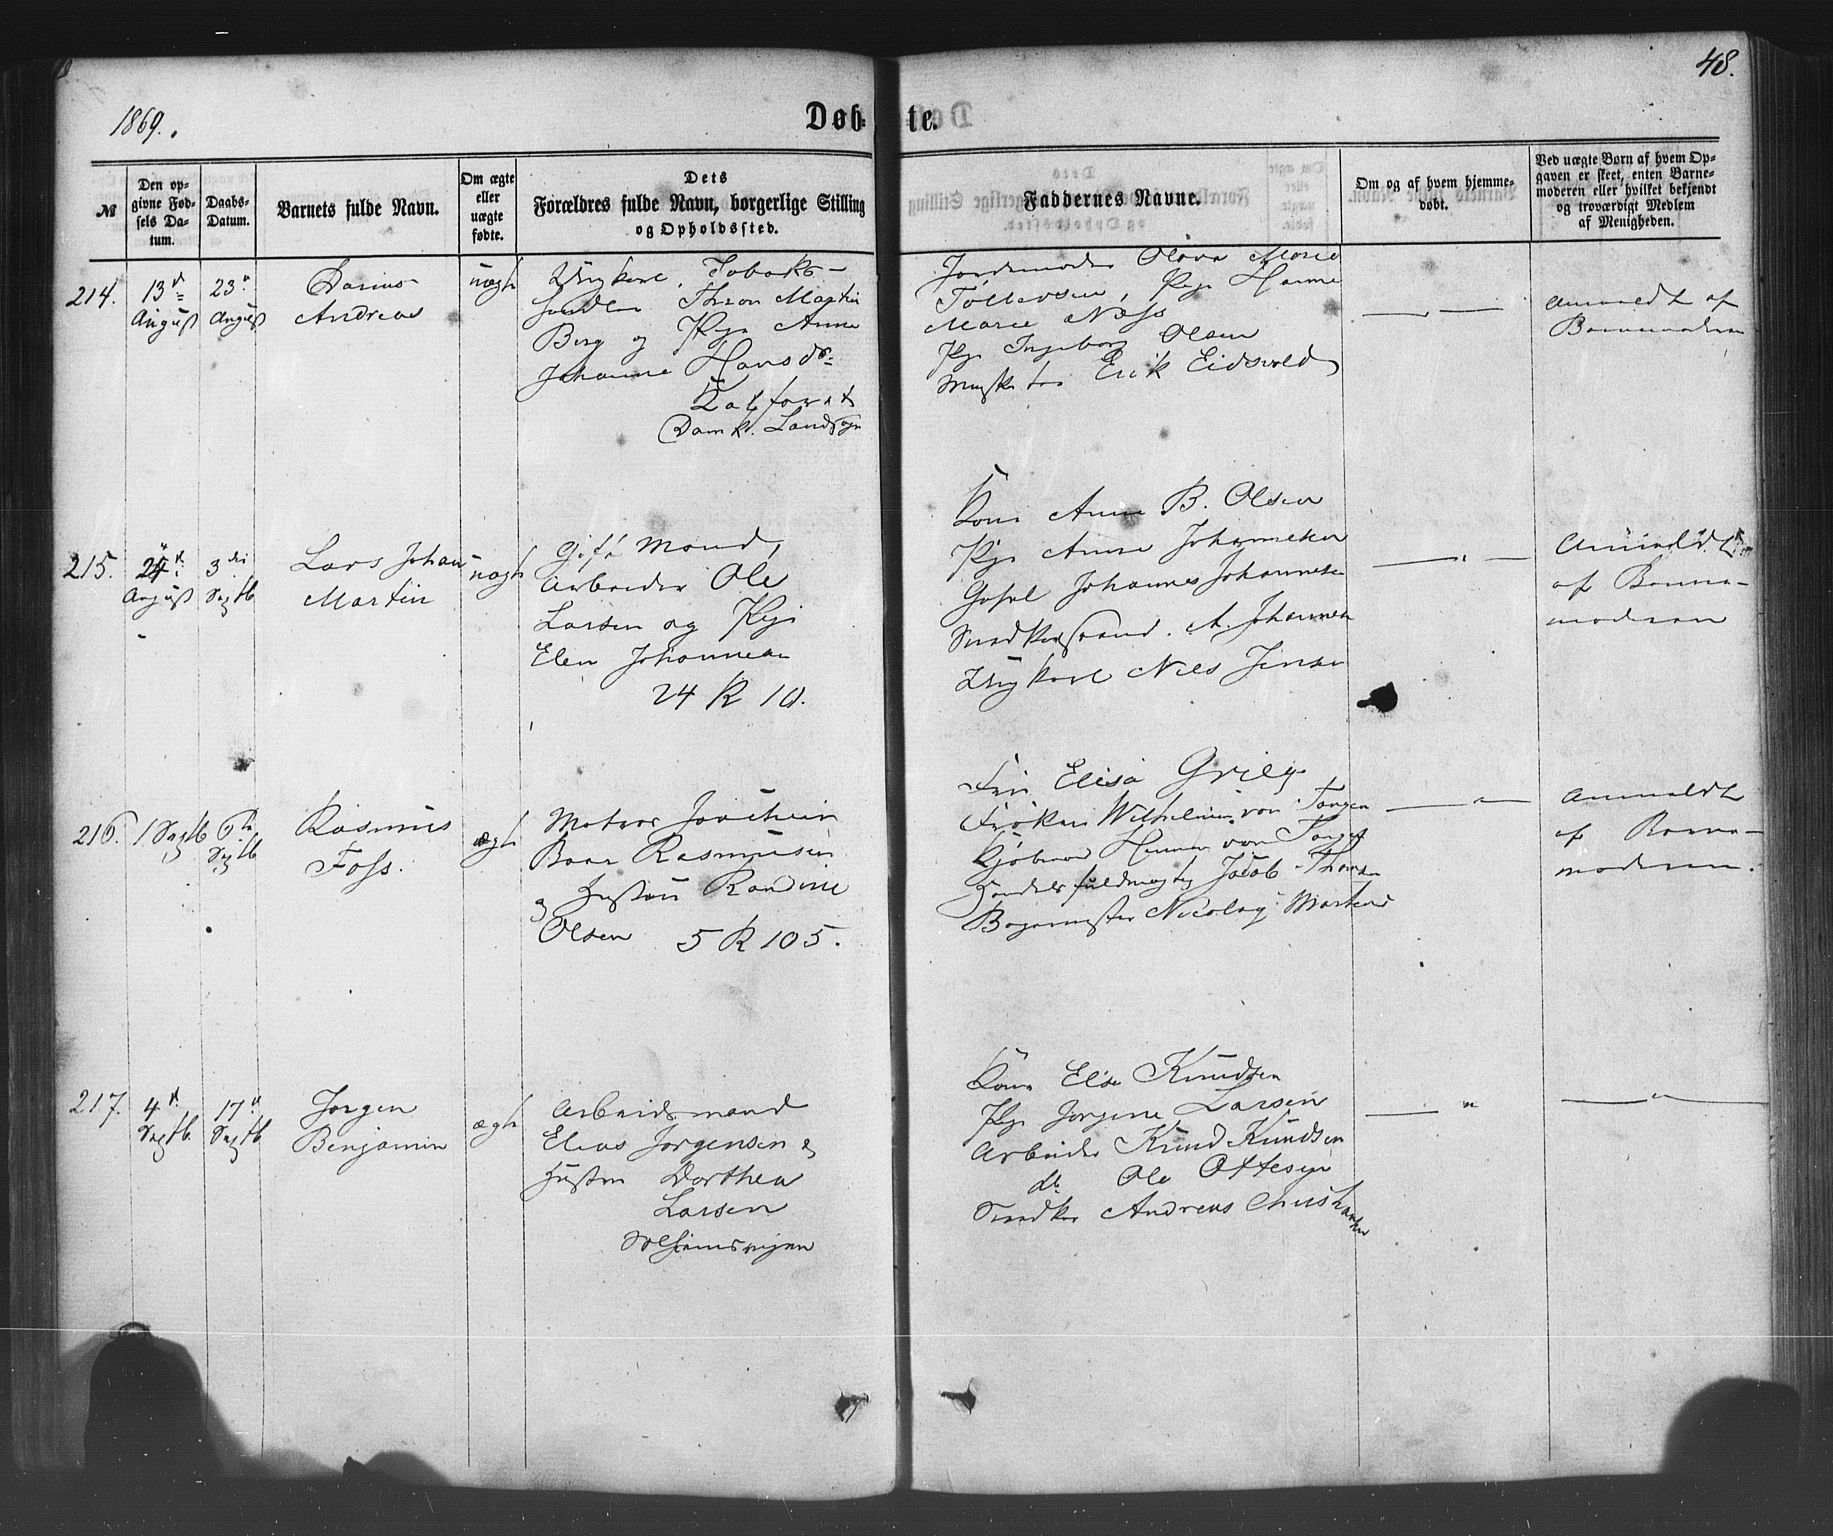 48.
1869.
Døb-te.
№
Den opgivne Fødsels Datum.
Daabs-Datum.
Barnets fulde Navn.
Om ægte eller uægte fødte.
Dets Forældres fulde Navn, borgerlige Stilling og Opholdssted.
Faddernes Navne.
Om og af hvem hjemmedøbt.
Ved uægte Børn af hvem Opgaven er skeet, enten Barnemoderen eller hvilket bekjendt og troværdigt Medlem af Menigheden.
214.
13d
August
23d
August
Andreas
uægte
Ungkarl, Tobaks-
Martin
Berg og Pige Anne
Johanne Hansdr
Kalfaret
Domk. Landsogn
Jordemoder Olava Marie
Tollevsen, Pige Hanne
Marie Næss
Pige Ingeborg Olsen
Erik Eidsvold
Anmeldt af
Barnemoderen
215.
August
3die
Septb
Lars Johan
Martin
uægte
Gift Mand,
Arbeider Ole
Larsen og Pige
Elen Johannesen
24 R 10.
Kone Anne B. Olsen
Pige Anne Johannesen
Johannes Johannesen
A. Johannesen
Ungkarl Niels Jensen
Anmeldt
af Barne-
moderen
216.
1 Septb
Septb
Rasmus
Foss.
ægte
Matros Joachim
Baar Rasmusen
og Hustru Randine
Olsen 5 R 105.
Fru Elisa Grieg
Frøken Wilhelmine von Tangen
Kjøbmand von Tangen
Handelsfuldmægtig Jacob
Nicolay Martens
Anmeldt
af Barne-
moderen.
217.
4d
Septb.
17d
Septb.
Jørgen
Benjamin
ægte
Arbeidsmand
Elias Jørgensen og
Hustru Dorthea
Larsen
Kone Elise Knudsen
Pige Jørgine Larsen
Arbeider Knud Knudsen
do Ole Ottesen
Snedker Andreas Christiansen